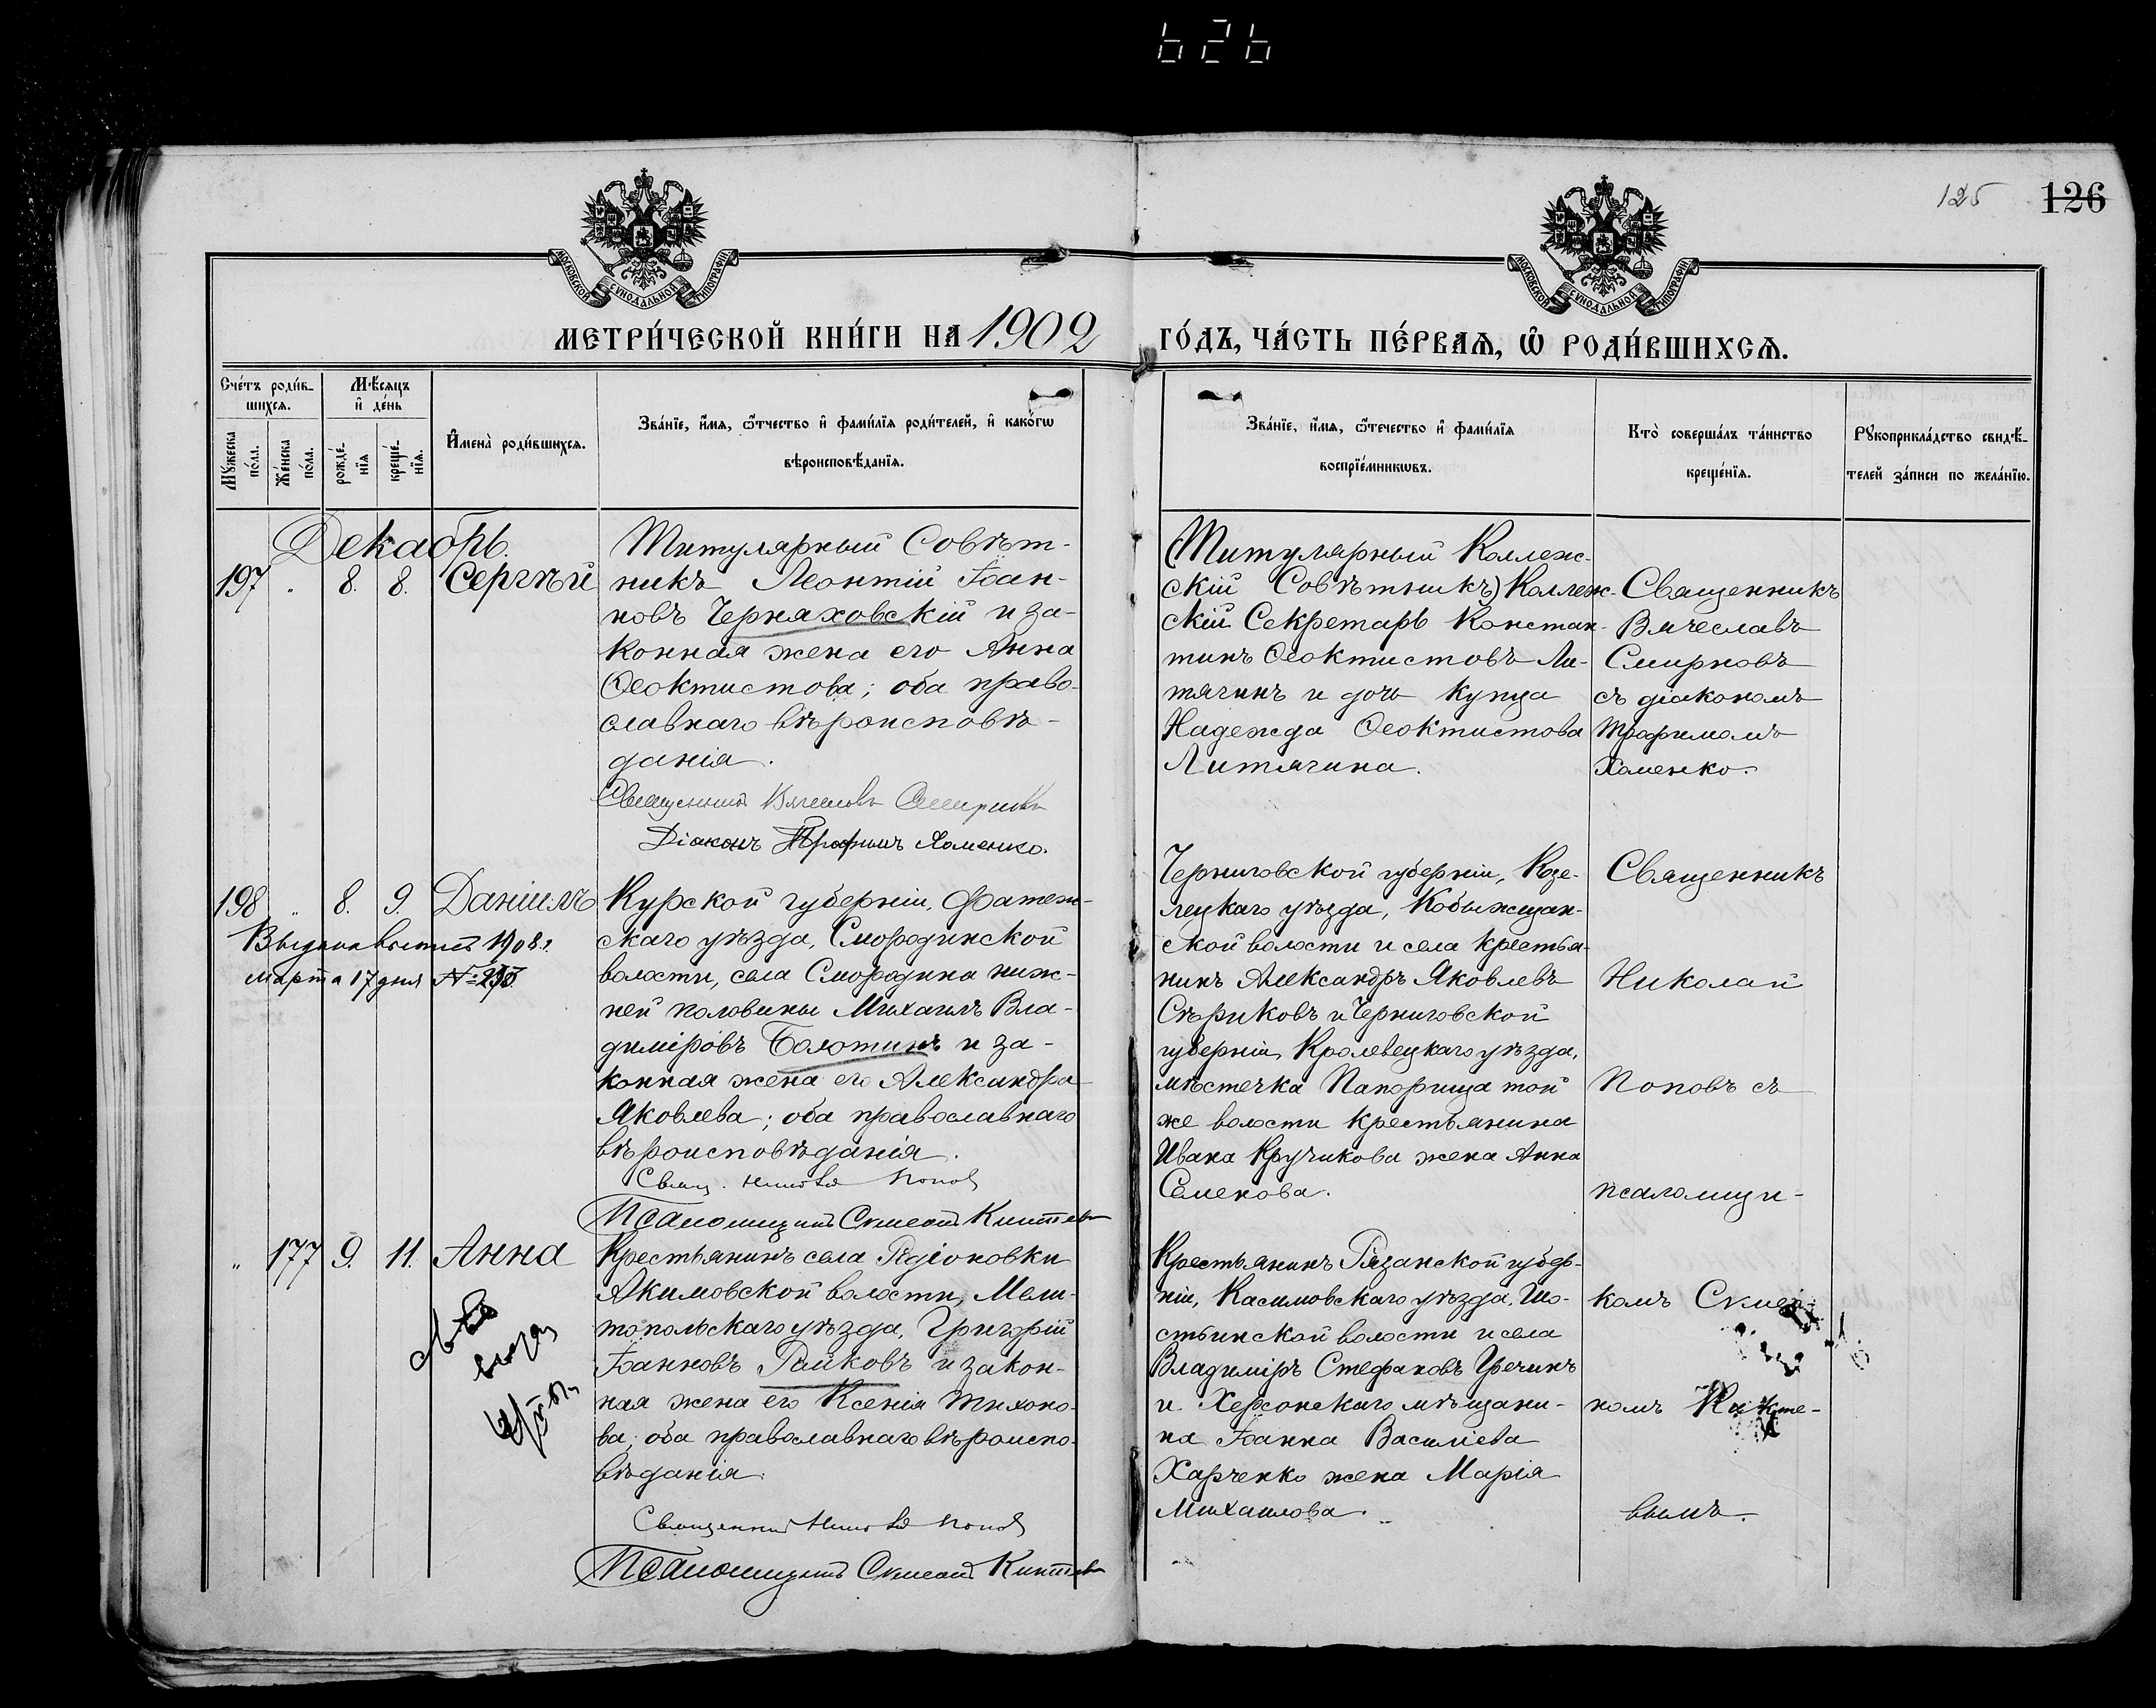 626
125
126
МОСКОВСКОЙ СѴНОДАЛЬНОЙ ТИПОГРАФІИ
МОСКОВСКОЙ СѴНОДАЛЬНОЙ ТИПОГРАФІИ
МЕТРИ́ЧЕСКОЙ КНИ́ГИ НА 1902 ГО́ДЪ, ЧА́СТЬ ПЕ́РВАѦ, Ѡ҆ РОДИ́ВШИХСѦ.
Сче́тъ роди́в-
шихсѧ.
Мѣ́сѧцъ
и҆ де́нь
Мꙋ́жеска
по́ла.
Же́нска
по́ла.
рожде́-
нїѧ
креще́-
нїѧ.
И҆мена̀ роди́вшихсѧ.
Зва́нїе, и҆́мѧ, ѻ҆́тчество и҆ фами́лїѧ роди́телей, и҆ како́гѡ
вѣроисповѣ́данїѧ.
Зва́нїе, и҆́мѧ, ѻ҆́течество и҆ фами́лїѧ
воспрїе́мникѡвъ.
Кто̀ соверша́лъ та́инство
креще́нїѧ.
Рꙋкоприкла́дство свидѣ́-
телей за́писи по жела́нїю.
Декабрь.
197 " 8. 8. Сергѣй
Титулярный Совѣт-
никъ Леонтій Іоан-
новъ Черняховскій и за-
конная жена его Анна
Ѳеоктистова; оба право-
славнаго вѣроисповѣ-
данія.
Священникъ Вячеславъ Смирновъ
Діаконъ Трофимъ Хоменко.
(Титулярный Коллеж-
скій Совѣтникъ) Коллеж-
скій Секретарь Констан-
тинъ Ѳеоктистовъ Ли-
тягинъ и дочь купца
Надежда Ѳеоктистова
Литягина.
Священникъ
Вячеславъ
Смирновъ
съ діакономъ
Трофимомъ
Хоменко.
198 " 8. 9. Даніилъ
Выдана выпись 1908 г.
марта 17 дня №
Курской губерніи, Фатеж-
скаго уѣзда, Смородинской
волости, села Смородина ниж-
ней половины Михаилъ Вла-
диміровъ Болотинъ и за-
конная жена его Александра
Яковлева; оба православнаго
вѣроисповѣданія.
Свящ. Николай Поповъ
Псаломщикъ Симеонъ Киктевъ
Черниговской губерніи, Козе-
лецкаго уѣзда, Кобыжщан-
ской волости и села крестья-
нинъ Александръ Яковлевъ
Сѣриковъ и Черниговской
губерніи, Кролевецкаго уѣзда,
мѣстечка Понорница той
же волости крестьянина
Ивана Кручикова жена Анна
Семенова.
Священникъ
Николай
Поповъ съ
псаломщи-
" 177 9. 11. Анна
Крестьянинъ села Радіоновки
Акимовской волости, Мели-
топольскаго уѣзда, Григорій
Іоанновъ Райковъ и закон-
ная жена его Ксенія Тихоно-
ва; оба православнаго вѣроиспо-
вѣданія.
Священникъ Николай Поповъ
Псаломщикъ Симеонъ Киктевъ
Крестьянинъ Рязанской губер-
ніи, Касимовскаго уѣзда, Шо-
стьинской волости и села
Владиміръ Стефановъ Гречинъ
и Херсонскаго мѣщани-
на Іоанна Василіева
Харченко жена Марія
Михаилова.
комъ Симео-
номъ Кикте-
вымъ.